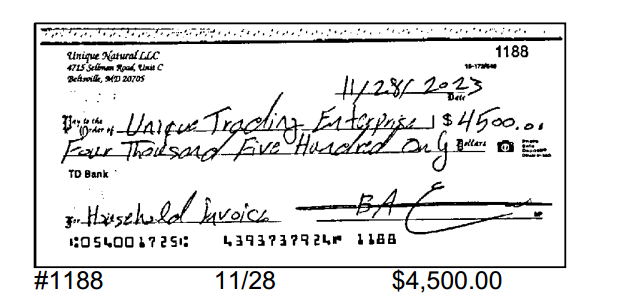 Unique Natural LLC
4715 Sellman Road, Unit C
Beltsville, MD 20705
1188
11/28/2023
Date
Pay to the
Order of Unique Trading Enterprise $4500.01
Four Thousand Five Hundred On G Dollars
TD Bank
For Household Invoice
MP
⑆054001725⑆ 4393737924⑈ 1188
#1188 11/28 $4,500.00